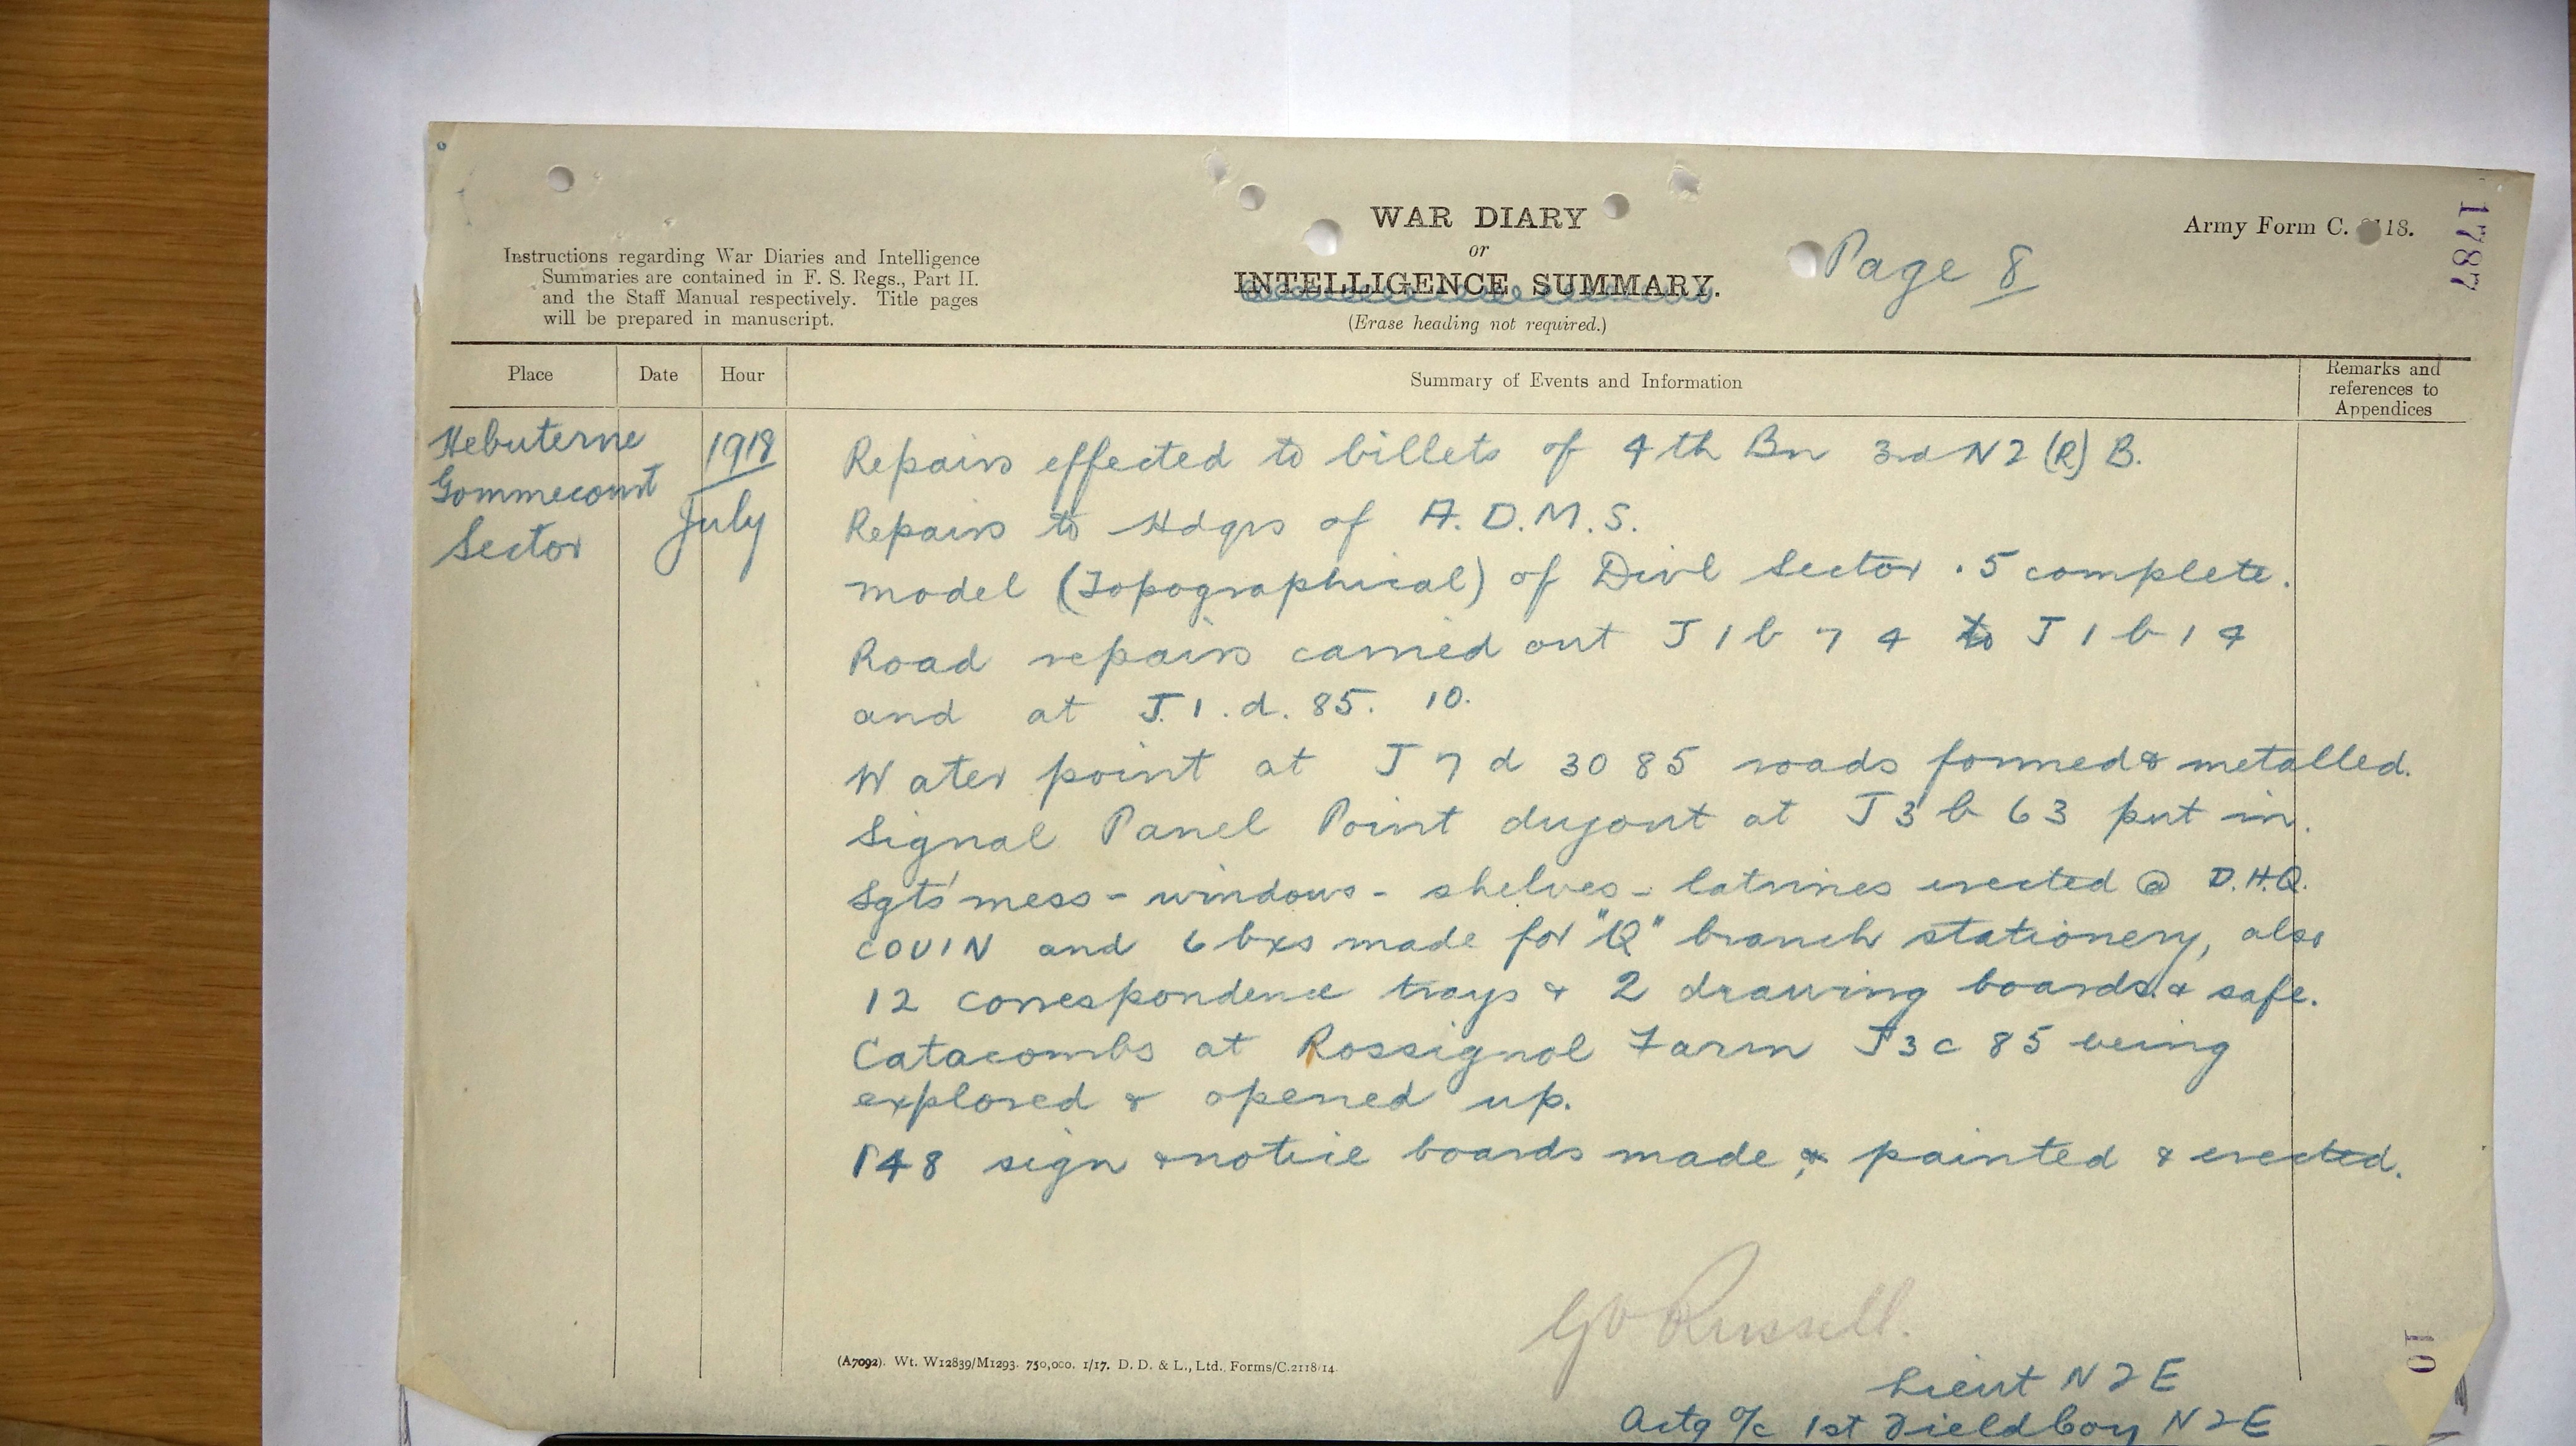 WAR DIARY
or
INTELLIGENCE SUMMARY.
(Erase heading not required.)
Page 8
Army Form C. 2118.
1787
Instructions regarding War Diaries and Intelligence
Summaries are contained in F. S. Regs., Part II.
and the Staff Manual respectively. Title pages
will be prepared in manuscript.
Place Date Hour Summary of Events and Information Remarks and references to Appendices
Hebuterne
Gommecourt
Sector
1918
July
Repairs effected to billets of 4th Bn 3rd NZ (R) B.
Repairs to Hdqrs of A.D.M.S.
model (Topographical) of Divl Sector .5 complete.
Road repairs carried out J 1 b 7 4 to J 1 b 1 4
and at J.1.d. 85. 10.
Water point at J 7 d 30 85 roads formed & metalled.
Signal Panel Point dugout at J 3 b 63 put in.
Sgts' mess - windows - shelves - latrines erected @ D.H.Q.
COUIN and 6 bxs made for "Q" branch stationery, also
12 correspondence trays & 2 drawing boards. & safe.
Catacombs at Rossignol Farm J 3 c 85 being
explored & opened up.
148 sign & notice boards made & painted & erected.
Russell.
Lieut N Z E
Actg O/c 1st Field Coy N Z E
(A7092). Wt. W12839/M1293. 750,000. 1/17. D. D. & L., Ltd. Forms/C.2118/14.
10